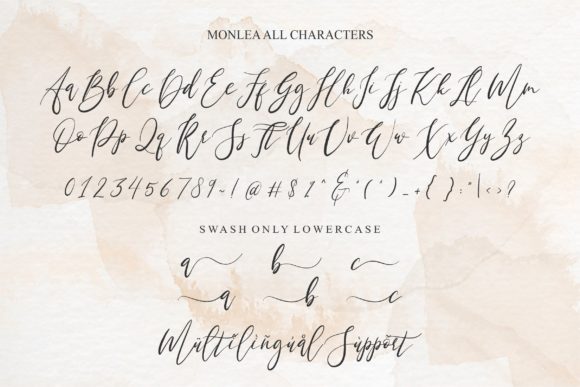 MONLEA ALL CHARACTERS
Aa Bb Cc Dd Ee Ff Gg Hh Ii Jj Kk Ll Mm
Oo Pp Qq Rr Ss Tt Uu Vv Ww Xx Yy Zz
0123456789~!@#$1^&*()_+{}:"|<>?
SWASH ONLY LOWERCASE
a b c
a b c
Múltïlìñgúål Süppõrt